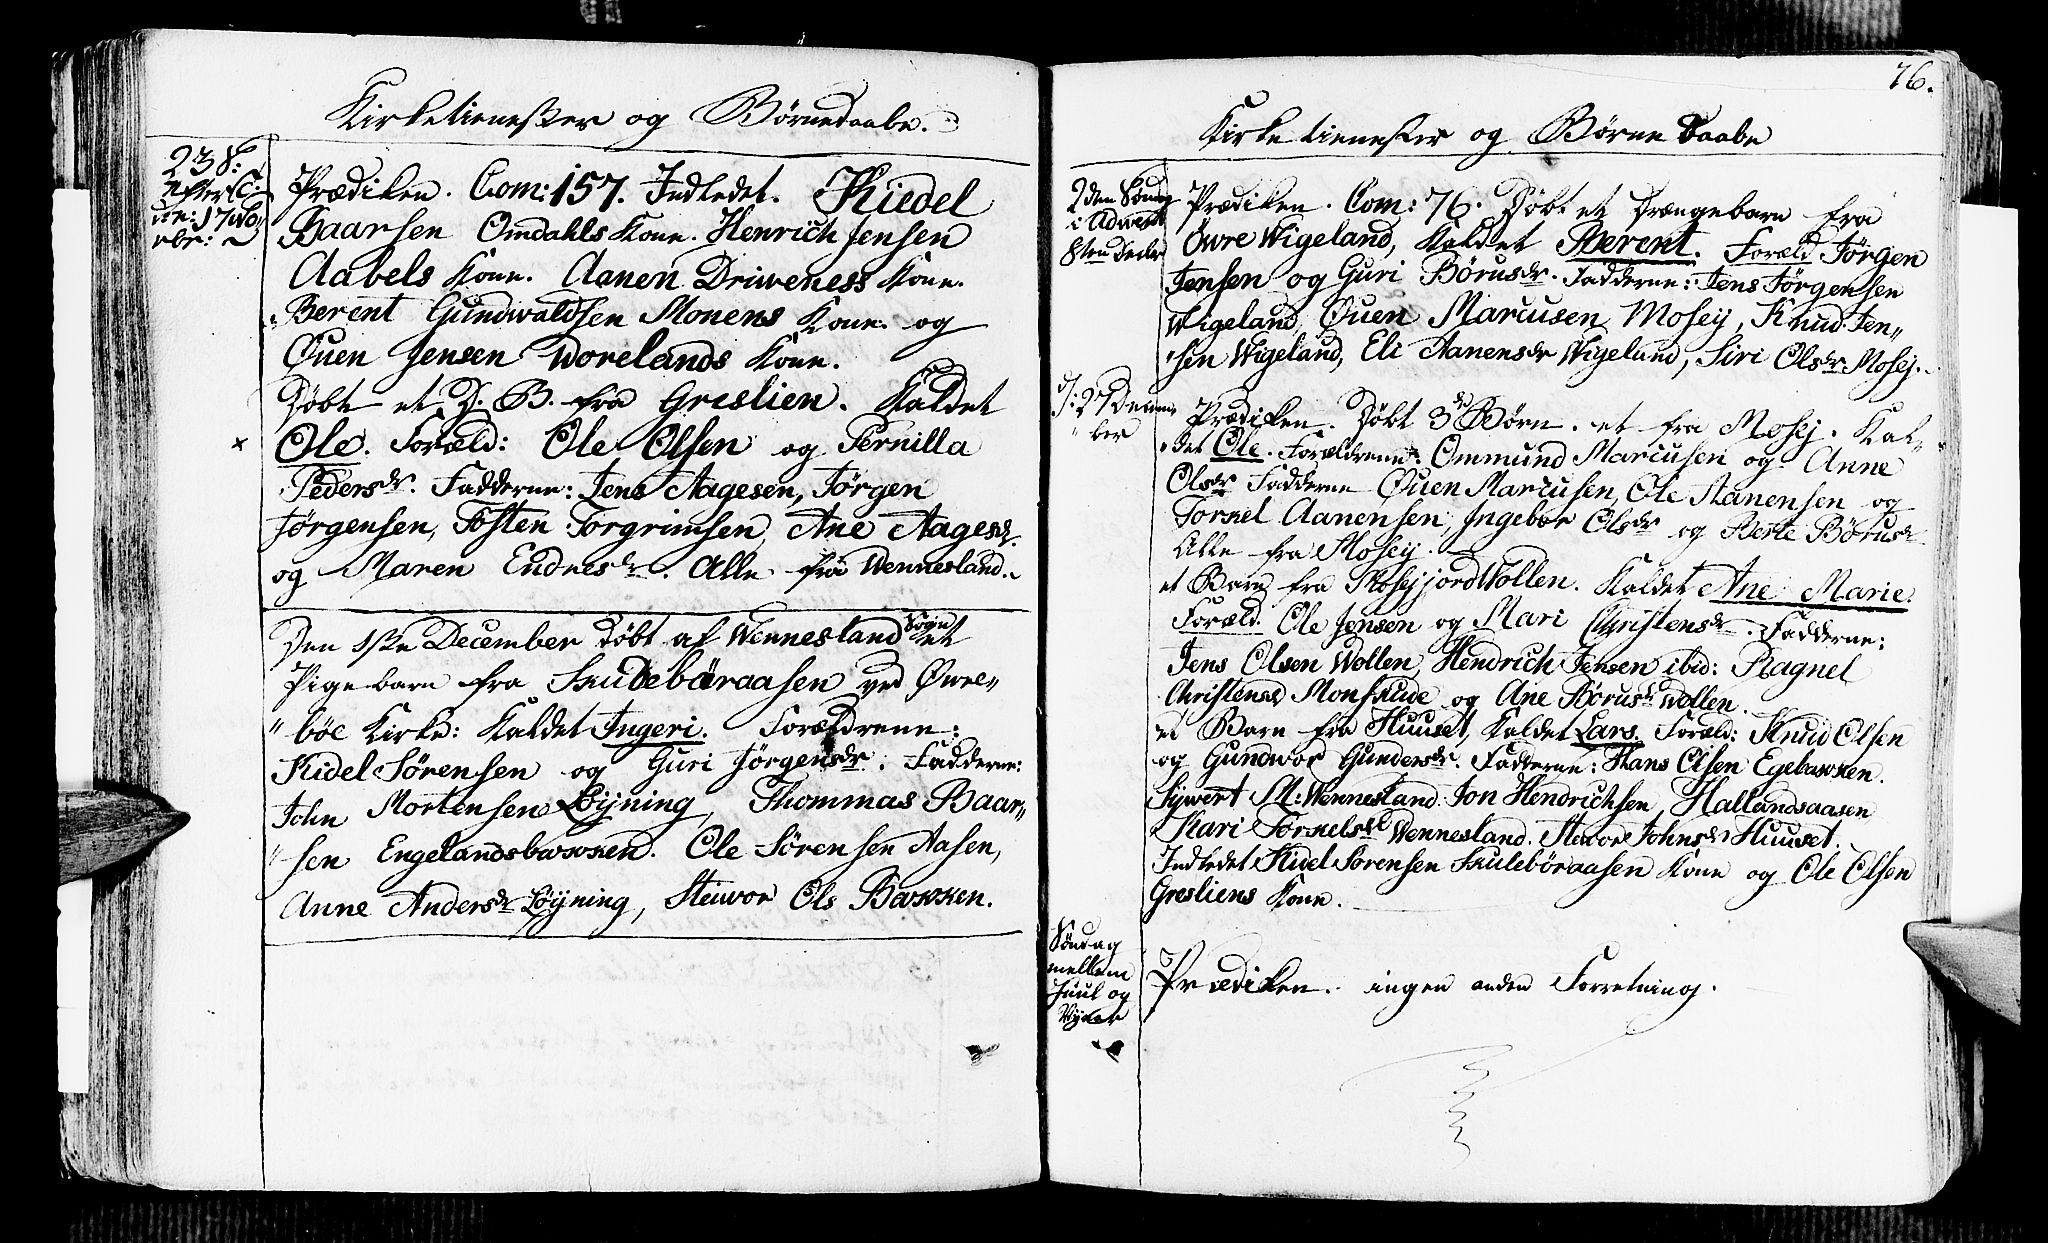 Kirketienester og Børnedaabe.
23 S:
efter T:
17 No
vbr:
Prædiken. Com: 157. Indledet. Kiedel
Baarsen Omdahls Kone. Henrich Jensen
Aabels Kone. Aanen Driweness Kone.
Berent Gundwaldsen Monens Kone og
Øuen Jensen Worelands Kone.
Døbt et D. B. fra Greslien. Kaldet
× Ole. Foræld: Ole Olsen og Pernilla
Pedersdr. Fadderne: Jens Aagesen, Jørgen
Jørgensen, Tosten Torgrimsen, Ane Aagesdr.
og Maren Endresdr. Alle fra Wennesland.
Den 1ste December døbt af Wennesland Sogn et
Pigebarn fra Skulebøraasen ved Øwre„
„bøe Kirke: Kaldet Ingeri. Forældrene:
Kidel Sørensen og Guri Jørgensdr. Fadderne:
John Mortensen Løyning, Thommas Baar„
„sen Engelandsbakken. Ole Sørensen Aasen,
Anne Andersdr Løyning, Steiwor Ols Bakken.
76.
Kirketienester og Børne Daabe
2den Sønd
i Advent
8ten Decbr
Prædiken. Com: 76. Døbt et Drængebarn fra
Øwre Wigeland, Kaldet Berent. Foræld Jørgen
Jensen og Guri Børusdr. Fadderne: Jens Jørgensen
Wigeland, Øuen Marcusen Mosey, Knud Jen„
„sen Wigeland, Eli Aanensdr Wigeland, Siri Olsdr Mosej.
d: 27 Decem„
„ber
Prædiken. Døbt 3de Børn. et fra Mosej. Kal„
„det Ole. Forældrene: Ommund Marcusen og Anne
Olsdr Fadderne Øuen Marcusen, Ole Aanensen og
Torkel Aanensen, Ingebor Olsdr og Berte Børusdr
Alle fra Mosey.
et Barn fra MosejjordWollen. Kaldet Ane Marie.
Foræld. Ole Jensen og Mari Christensdr. Fadderne:
Jens Olsen Wollen, Hendrich Jensen ibid: Ragnel
Christensdr Monskue og Ane Børusdr Wollen.
et Barn fra Huuset, Kaldet Lars. Foræld: Knud Olsen
og Gundwor Gundersdr. Fadderne: Hans Olsen Egebakken.
Sywert M: Wennesland. Jon Hendrichsen Hallandsaasen
Kari Torkelsdr Wennesland. Johnsdr Huuset.
Indledet Kidel Sørensen Skulebøraasen Kone og Ole Olsen
Gresliens Kone.
Søndag
mellem
Juul og
Nytaar
Prædiken. ingen anden Forretning.